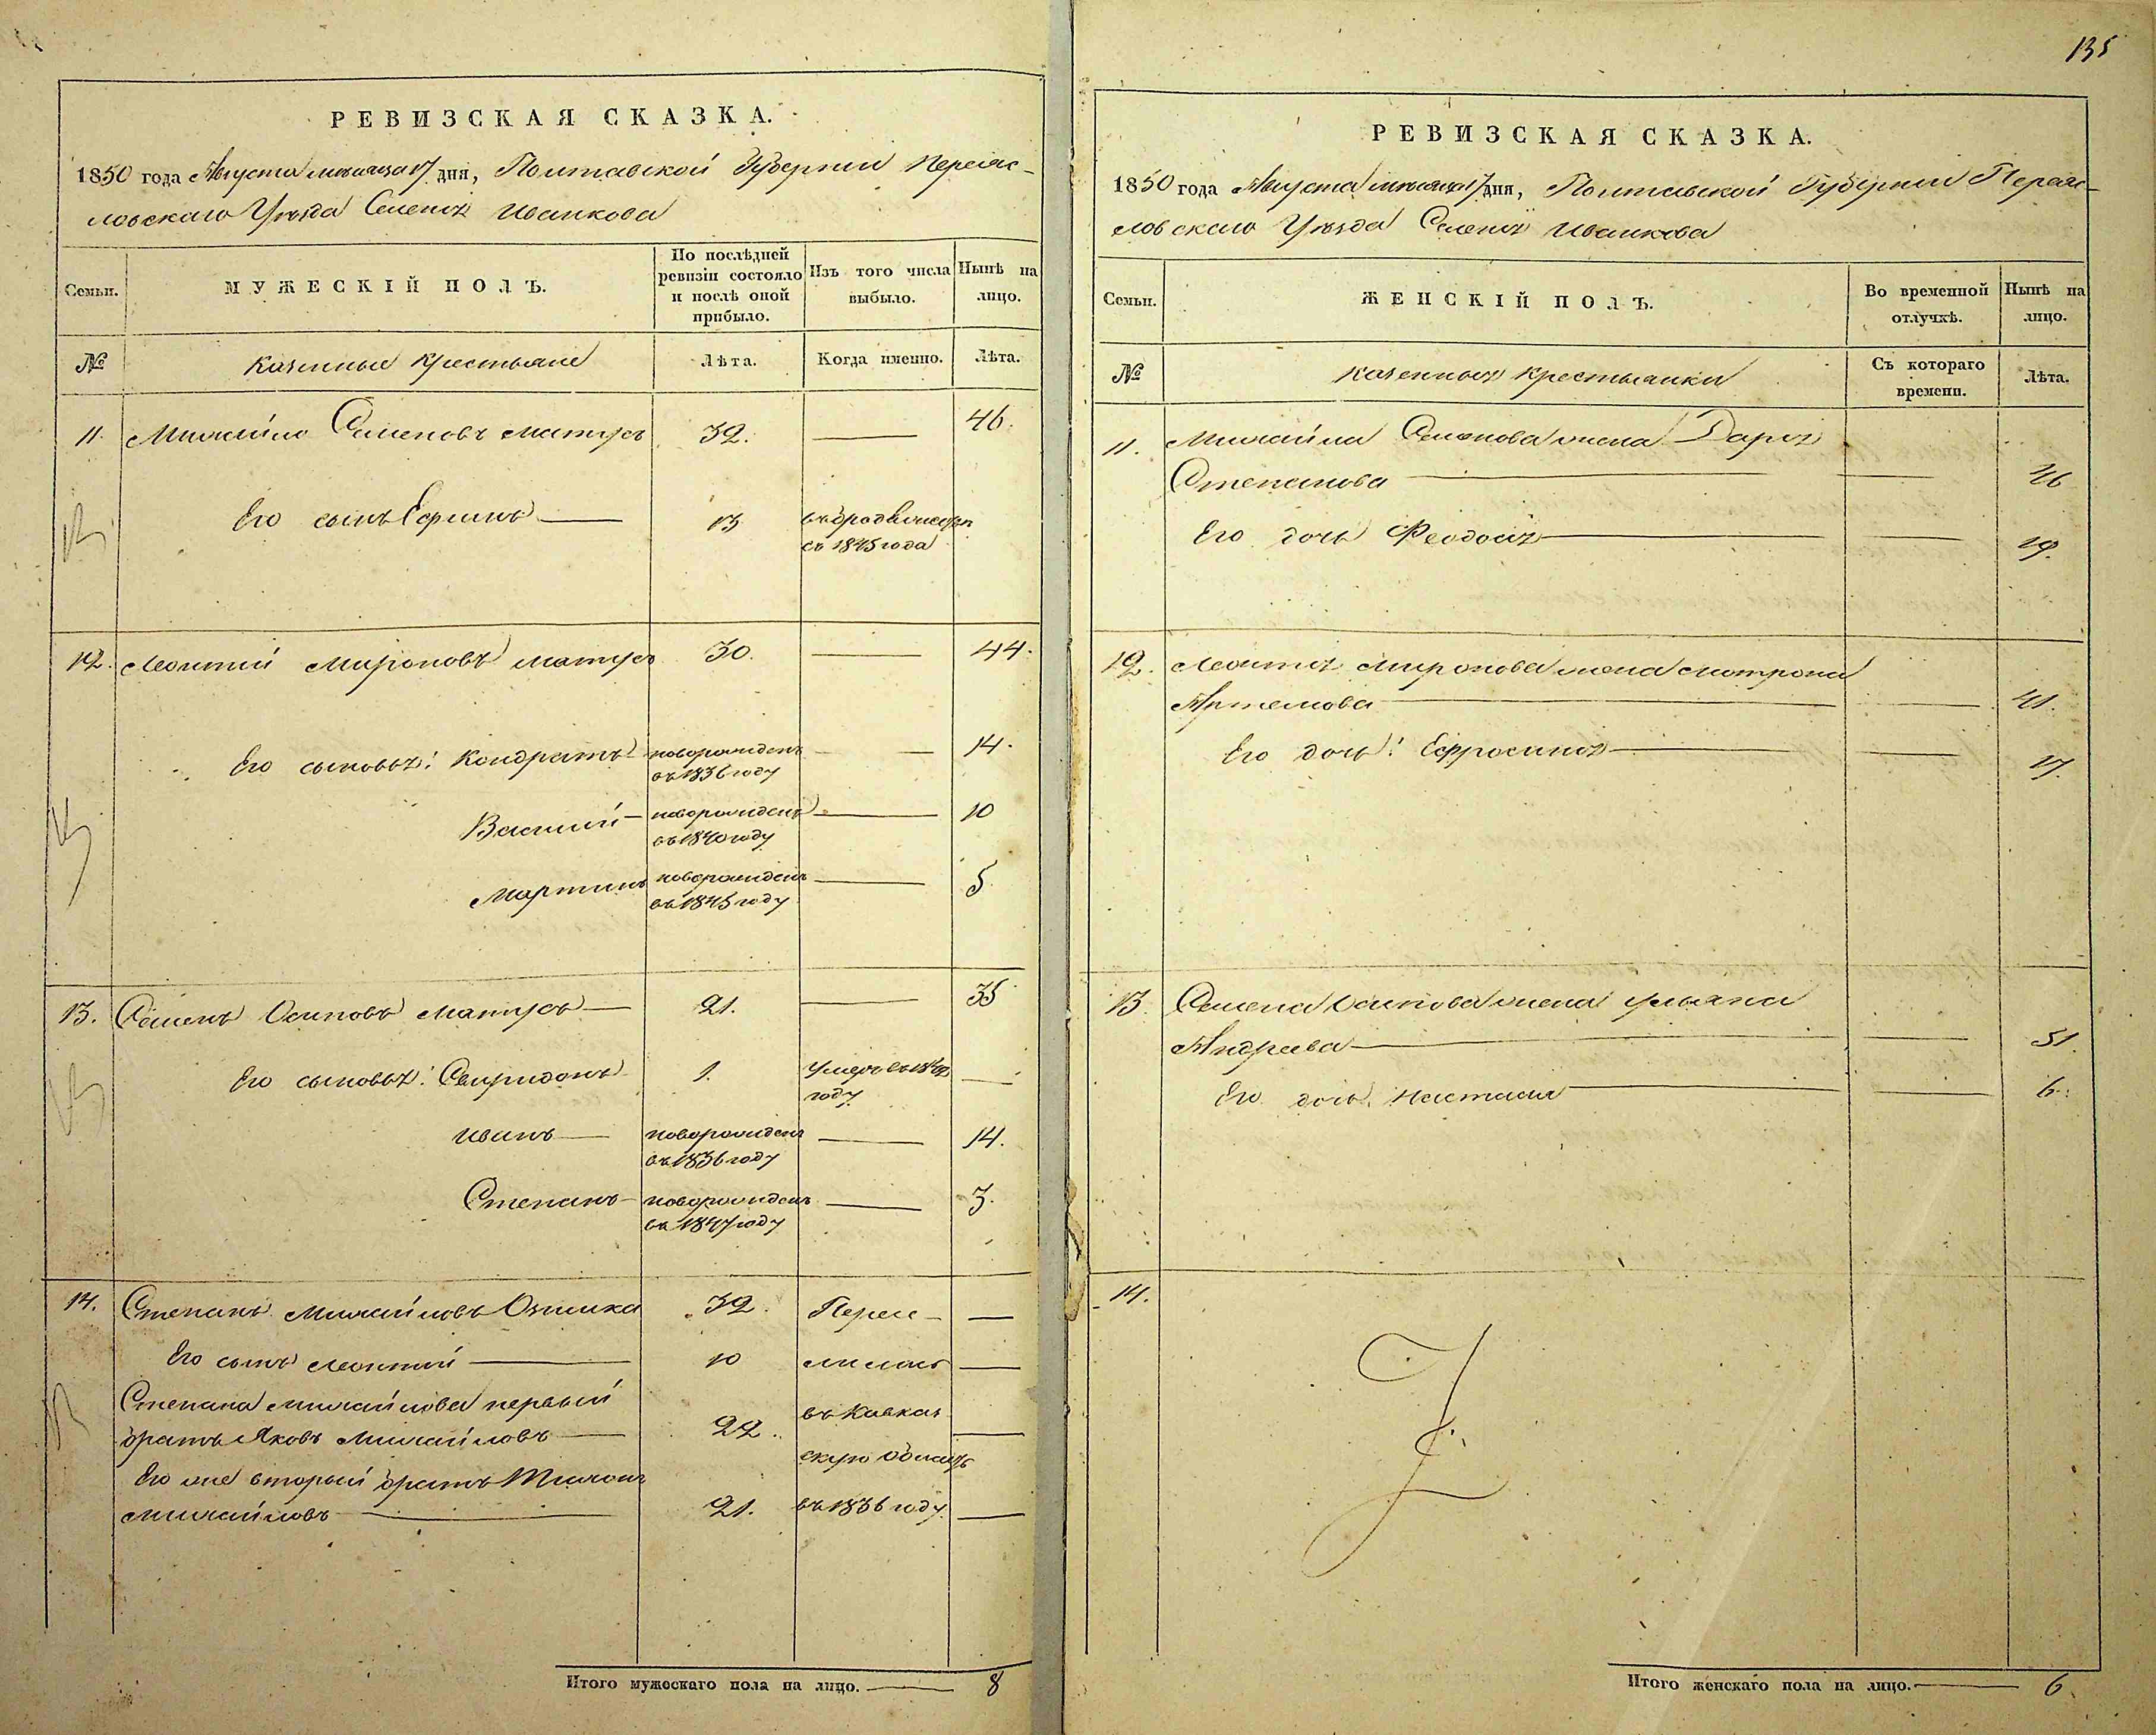 135
РЕВИЗСКАЯ СКАЗКА.
1850 года Августа месяца 17 дня, Полтавской Губернии Переяс-
ловскаго Уѣзда Селенія Иванкова
Семьи.
МУЖЕСКІЙ ПОЛЪ.
По послѣдней
ревизіи состояло
и послѣ оной
прибыло.
Изъ того числа
выбыло.
Нынѣ на
лицо.
№
Казенные крестьяне
Лѣта.
Когда именно.
Лѣта.
11. Михайло Семеновъ Матусъ 32. 46.
Его сынъ Ефимъ 13
въ бродяжествѣ
съ 1845 года
12. Леонтій Мироновъ Матусъ 30. 44.
Его сыновья: Кондратъ новорожденъ 14.
въ 1836 году
Василій новорожденъ 10
въ 1840 году
Мартинъ новорожденъ 5
въ 1845 году
13. Семенъ Осиповъ Матусъ 21. 35
Его сыновья: Свиридонъ 1. умеръ въ
году
Иванъ новорожденъ 14.
въ 1836 году
Степанъ новорожденъ 3.
въ 1847 году
14. Степанъ Михайловъ 32. Пересе-
Его сынъ Леонтій 10 лились
Степана Михайлова первый
въ Кавказ
братъ Яковъ Михайловъ 22.
скую область
Его же второй братъ Тихонъ
Михайловъ 21. въ 1836 году
Итого мужескаго пола на лицо. 8
РЕВИЗСКАЯ СКАЗКА.
1850 года Августа месяца 17 дня, Полтавской Губернии Переяс-
ловскаго Уѣзда Селенія Иванкова
Семьи.
ЖЕНСКІЙ ПОЛЪ.
Во временной
отлучкѣ.
Нынѣ на
лицо.
№
Казенныя крестьянки
Съ котораго
времени.
Лѣта.
11. Михайла Семенова жена Дарья
Степанова 46
Его дочь Феодосія 19.
12. Леонтія Миронова жена Мотрона
Артемова 41.
Его дочь: Ефросинія 17.
13 Семена Осипова жена Ульяна
Андреева 31.
Его дочь Настасия 6.
14.
Итого женскаго пола на лицо. 6